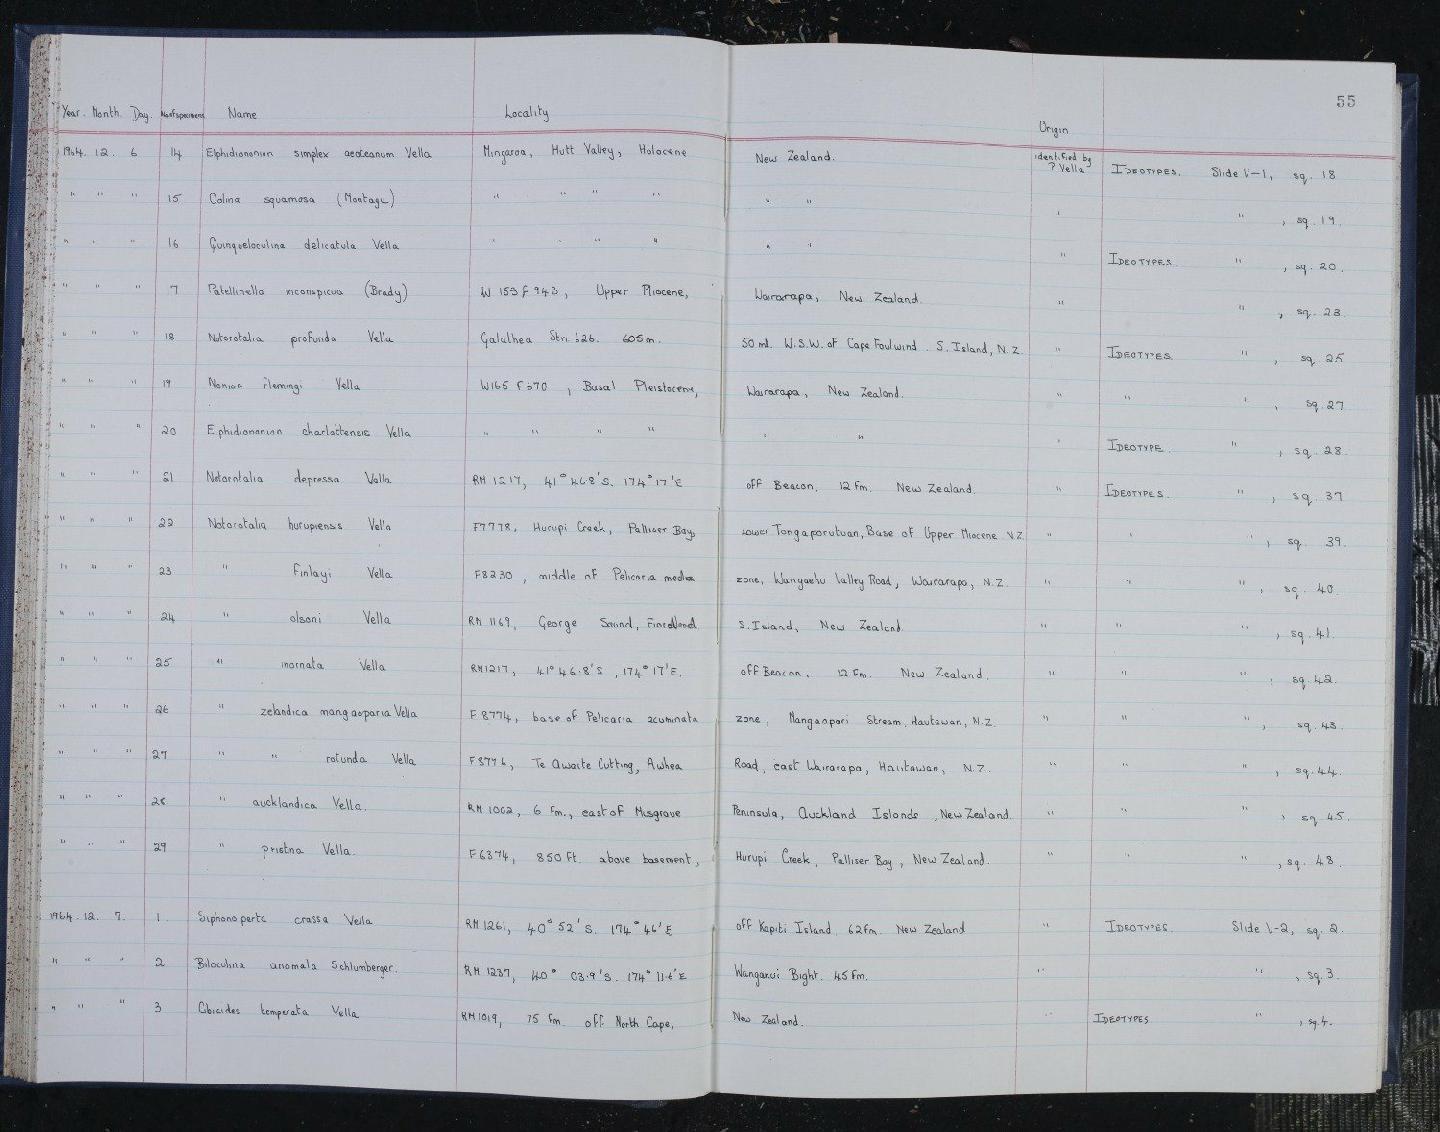 55
Year. Month. Day. No of specimens Name Locality Origin
1964. 12. 6 14 Elphidiononion simplex aoteanum Vella Mingaroa, Hutt Valley, Holocene New Zealand. identified by ? Vella IDEOTYPES. Slide V-1, sq. 18
" " " 15 Colina squamosa (Montagu) " " " " " " " " , sq. 19.
" " " 16 Quinqueloculina delicatula Vella " " " " " " " IDEOTYPES " , sq. 20.
" " " 7 Patellinella inconspicua (Brady) W 153 f 943, Upper Pliocene, Wairarapa, New Zealand. " " , sq. 23.
" " " 18 Notorotalia profunda Vella Galathea Stn. 626. 605 m. 50 ml. W.S.W. of Cape Foulwind. S. Island, N.Z. " IDEOTYPES " , sq. 25
" " " 19 Nonion flemingi Vella W165 f 570, Basal Pleistocene, Wairarapa, New Zealand. " " " , sq. 27
" " " 20 Elphidiononion charlottensis Vella " " " " " " " IDEOTYPE. " , sq. 28.
" " " 21 Notorotalia depressa Vella RM 1217, 41° 46.8'S. 174° 17'E off Beacon. 12 Fm. New Zealand. " IDEOTYPES. " , sq. 37
" " " 22 Notorotalia hurupiensis Vella F7778, Hurupi Creek, Palliser Bay, Lower Tongaporutuan, Base of Upper Miocene N.Z. " " " , sq. 39.
" " " 23 " Finlayi Vella F8230, middle of Pelicaria media zone, Wangaehu Valley Road, Wairarapa, N.Z. " " " , sq. 40.
" " " 24 " olsoni Vella RM 1169, George Sound, Fiordland. S. Island, New Zealand. " " " , sq. 41.
" " " 25 " inornata Vella RM1217, 41° 46.8'S, 174° 17'E. off Beacon. 12 Fm. New Zealand. " " " , sq. 42.
" " " 26 " zelandica mangaoparia Vella F 8774, base of Pelicaria acuminata zone, Mangaopari Stream, Hautawan, N.Z. " " " , sq. 43.
" " " 27 " " rotunda Vella F8776, Te Awaite Cutting, Awhea Road, east Wairarapa, Hautawan, N.Z. " " " , sq. 44.
" " " 28 " aucklandica Vella. RM 1002, 6 Fm., east of Musgrave Peninsula, Auckland Islands, New Zealand. " " " , sq 45.
" " " 29 " pristina Vella. F6374, 850 Ft. above basement, Hurupi Creek, Palliser Bay, New Zealand. " " " , sq. 48.
1964. 12. 7. 1. Siphonoperta crassa Vella RM 1261, 40° 52'S. 174° 46'E off Kapiti Island. 62 Fm. New Zealand " IDEOTYPES. Slide V-2, sq. 2.
" " " 2 Biloculina anomala Schlumberger. RM 1237, 40° 03.9'S. 174° E Wanganui Bight. 45 Fm. " " , sq. 3.
" " " 3 Cibicides temperata Vella RM1019, 75 Fm. off North Cape, New Zealand. " IDEOTYPES " , sq. 4.